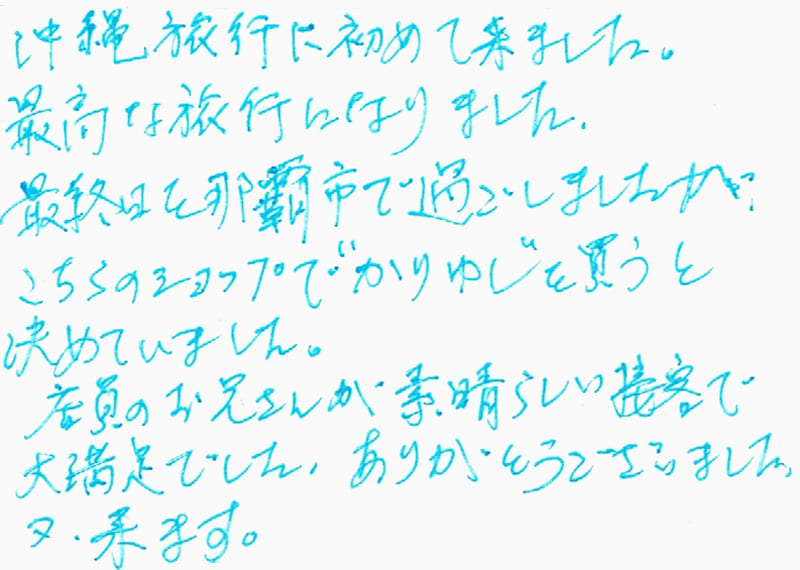 沖縄旅行に初めて来ました。
最高な旅行になりました.
最終日を那覇市で過ごしましたが、
こちらのショップでかりゆしを買うと
決めていました。
店員のお兄さんが素晴らしい接客で
大満足でした、ありがとうございました、
又、来ます。